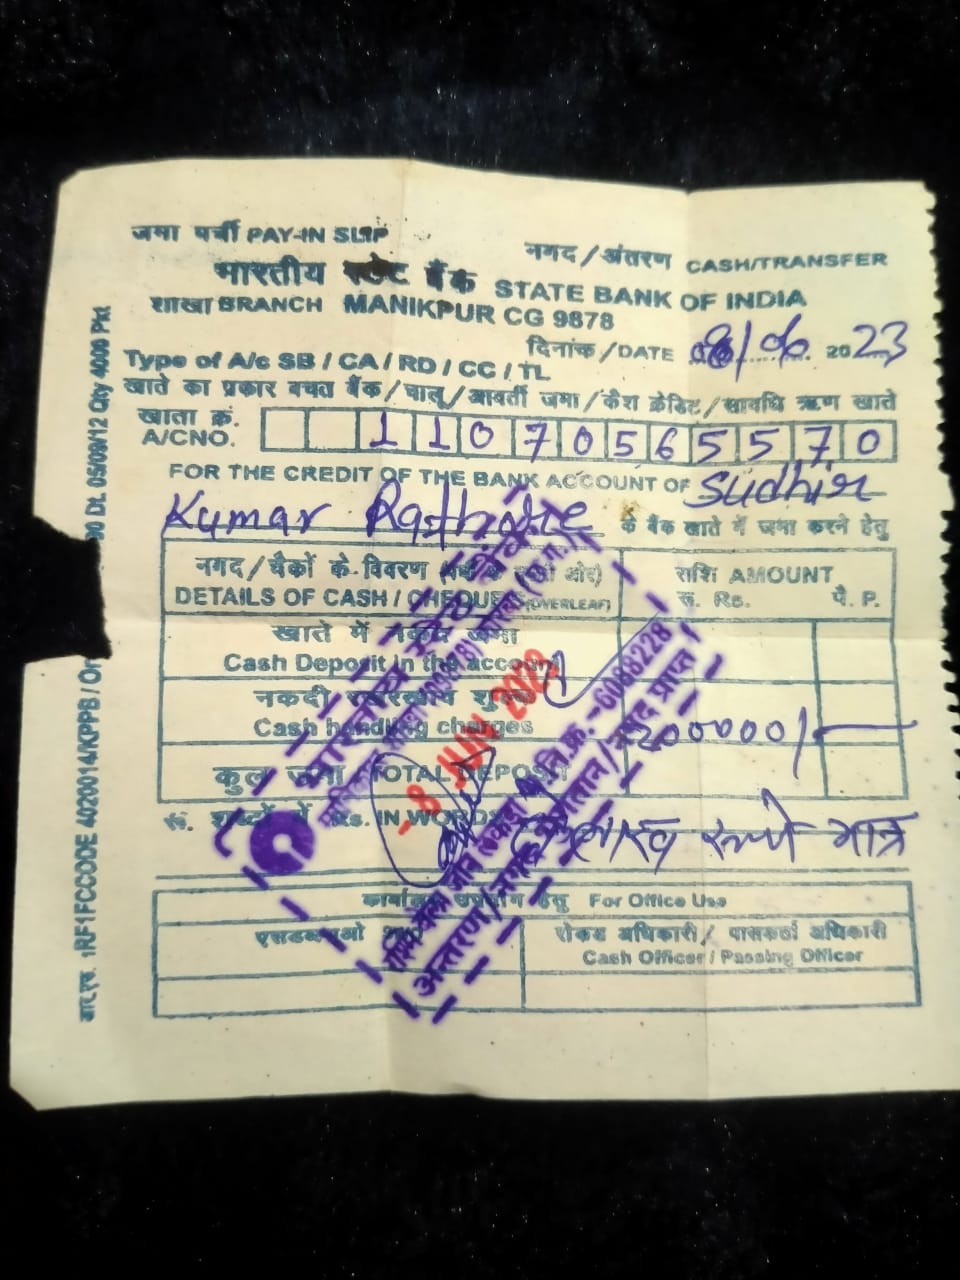 जमा पर्ची PAY-IN SLIP
नगद / अंतरण CASH/TRANSFER
भारतीय स्टेट बैंक STATE BANK OF INDIA
शाखा BRANCH MANIKPUR CG 9878
दिनांक / DATE 08/06 2023
Type of A/c SB / CA / RD / CC / TL
खाते का प्रकार बचत बैंक / चालू / आवर्ती जमा / कैश क्रेडिट / सावधि ऋण खाते
खाता क्रं.
A/CNO. 11070565570
FOR THE CREDIT OF THE BANK ACCOUNT OF Sudhir
Kumar Rathore के बैंक खाते में जमा करने हेतु
नगद / चैकों के विवरण ओर)
राशि AMOUNT
DETAILS OF CASH / CHEQUES (OVERLEAF)
रू. Rs. पै. P.
खाते में नकद जमा
Cash Deposit in the account
नकदी शुल्क
Cash handling charges
200000/-
कुल जमा / TOTAL DEPOSIT
रू. शब्दों में Rs. IN WORDS
रूपये मात्र
-8 JUN 2023
-6088228
अन्तरण / नगद प्राप्त
कार्यालय उपयोग हेतु For Office Use
रोकड अधिकारी / पासकर्ता अधिकारी
Cash Officer / Passing Officer
आर.एस. 1RF1FCCODE 4020014/KPPB / Or
00 Dt. 05/09/12 Qty 4000 Pkt